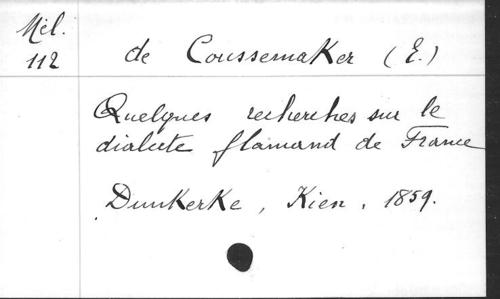 Mél.
112
de Coussemaker (E.)
Quelques recherches sur le
dialecte flamand de France
Dunkerke, Kien, 1859.